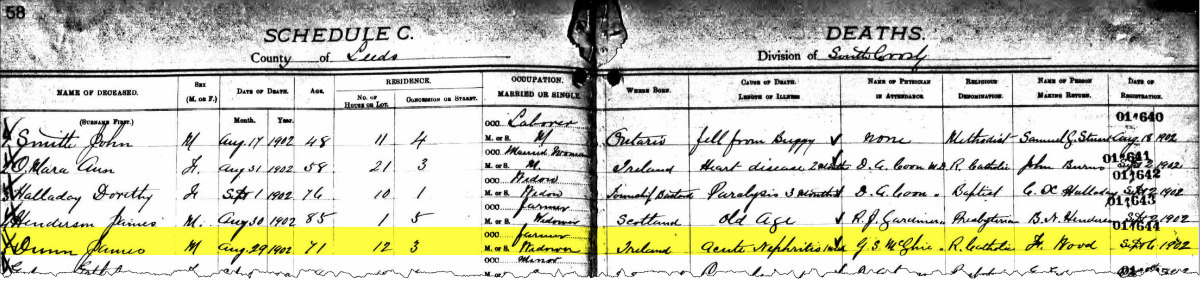 58
SCHEDULE C. DEATHS.
County of Leeds Division of South Crosby
NAME OF DECEASED. SEX (M. OR F.) DATE OF DEATH. AGE. RESIDENCE. OCCUPATION. MARRIED OR SINGLE. WHERE BORN. CAUSE OF DEATH. LENGTH OF ILLNESS NAME OF PHYSICIAN IN ATTENDANCE. RELIGIOUS DENOMINATION. NAME OF PERSON MAKING RETURN. DATE OF REGISTRATION.
NO. OF HOUSE OR LOT. CONCESSION OR STREET.
(SURNAME FIRST.) Month. Year.
OCC. Laborer 011640
Smith John M Aug 17 1902 48 11 4 M. or S. M Ontario fell from Buggy none Methodist Samuel G. Aug 18 1902
OCC. Married Woman 011641
O'Mara Ann F. Aug 31 1902 58 21 3 M. or S. M. Ireland Heart disease D. G. Coon M.D. R. Catholic John Burns Sept 2 1902
OCC. Widow 011642
Halladay Dorothy F Sept 1 1902 76 10 1 M. or S. Widow Township Bastard Paralysis 3 months D. G. Coon " Baptist C. X Halladay Sept 2 1902
OCC. farmer 011643
Henderson James M. Aug 30 1902 85 1 5 M. or S. Widower Scotland Old Age R. J. Gardiner Presbyterian B. N. Henderson Sept 2 1902
OCC. farmer 011644
Dunn James M Aug 29 1902 71 12 3 M. or S. Widower Ireland Acute Nephritis G S McGhie R. Catholic F. Wood Sept 6 1902
OCC. Minor